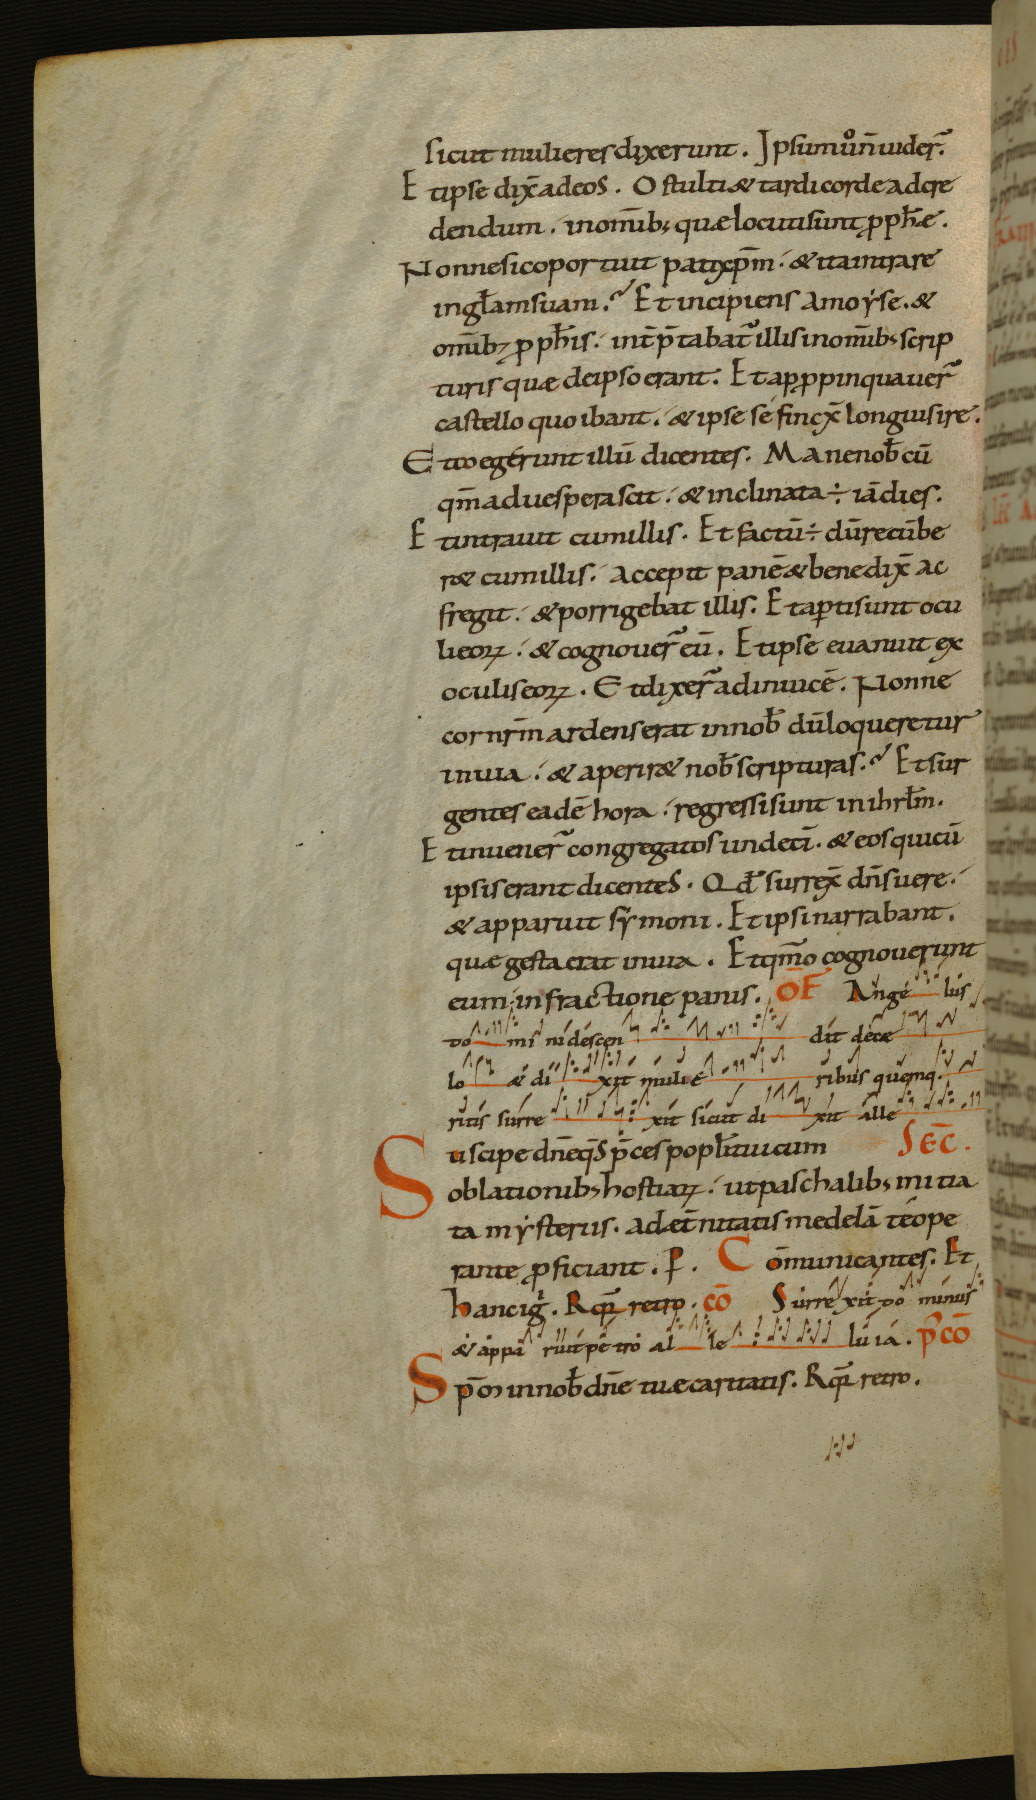 sicut mulieres dixerunt. Ipsum ů n̄ uider̄.
Et ipse dix̄ ad eos. O stulti & tardi corde ad cre
dendum. in om̄ib; quæ locuti sunt ꝓph̄æ.
Nonne sic oportuit pati xp̄m. & ita intrare
in gl̄am suam. Et incipiens a moẏse. &
om̄ib; ꝓph̄is. int̄p̄tabat̄ illis in om̄ib; scrip
turis quæ de ipso erant. Et apꝓpinquauer̄
castello quo ibant. & ipse se finx̄ longius ire.
Et coegerunt illū dicentes. Mane nob̄cū
qm̄ aduesperascit. & inclinata ÷ iā dies.
Et intrauit cum illis. Et factū ÷ dū recūbe
r& cum illis. Accepit panē & benedix̄ ac
fregit. & porrigebat illis. Et aꝑti sunt ocu
li eoꝝ. & cognouer̄ eū. Et ipse euanuit ex
oculis eoꝝ. Et dixer̄ ad inuicē. Nonne
cor nr̄m ardens erat in nob̄ dū loqueretur
in uia. & aperir& nob̄ scripturas. Et sur
gentes eadē hora. regressi sunt in ihrl̄m.
Et inuener̄ congregatos undecī. & eos qui cū
ipsis erant dicentes. Qd̄ surrex̄ dn̄s uere.
& apparuit sẏmoni. Et ipsi narrabant.
quæ gesta erat in uia. Et qm̄o cognouerunt
eum in fractione panis. OF̄ Ange lus
do mi ni descen dit de cæ
lo & di xit mulie ribus quem q.
ritis surre xit sicut di xit alle
Suscipe dn̄e qs̄ p̄ces popl̄i tui cum SEC̄.
oblationib; hostiaꝝ. ut paschalib; initia
ta mẏsteriis. ad æt̄nitatis medelā te ope
rante ꝓficiant. P. Cōmunicantes. Et
hanc ig̅. Rq̄ retro. cō Surrexit dominus
& appa ruit petro al le lu ia. p̄ cō
Sp̄m in nob̄ dn̄e tuæ caritatis. Rq̄ retro.